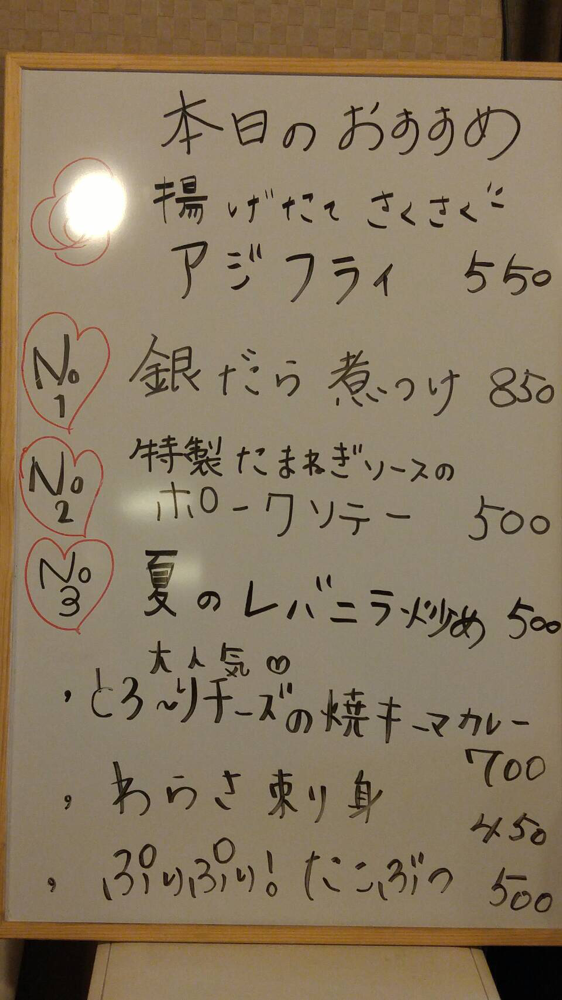 本日のおすすめ
揚げたて さくさくで
アジフライ 550
No1 銀だら 煮つけ 850
No2 特製たまねぎソースの
ポークソテー 500
No3 夏のレバニラ炒め 500
大人気♡
，とろ〜りチーズの焼キーマカレー
700
，わらさ刺り身
450
，ぷりぷり！たこぶつ 500